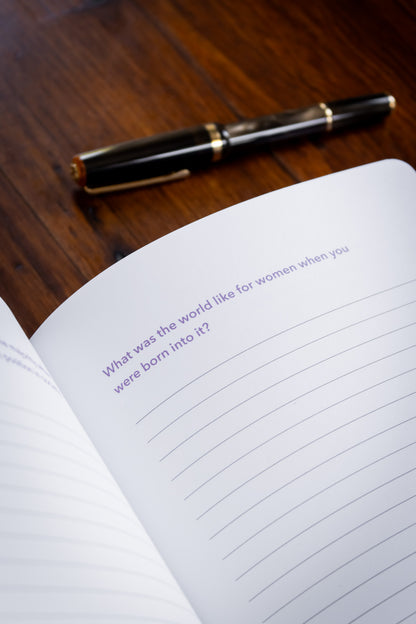 What was the world like for women when you
were born into it?